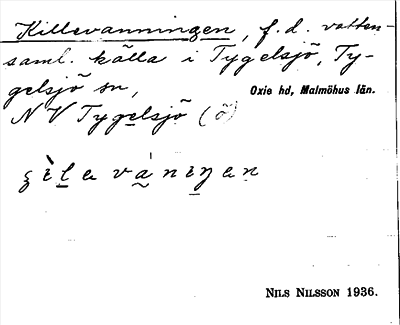 Killevanningen, f. d. vatten-
saml. källa i Tygelsjö, Ty-
gelsjö sn,
Oxie hd, Malmöhus län.
N V Tygelsjö (ö)
NILS NILSSON 1936.